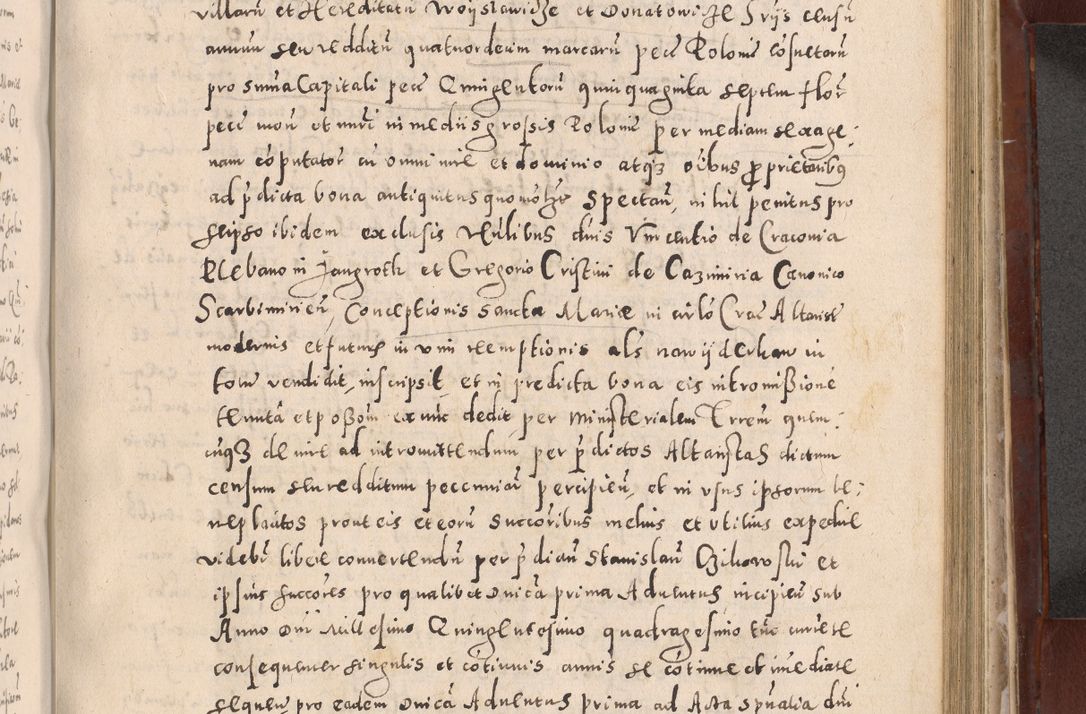 villarũ et Hereditatũ Woyslawicze et Donatowicze Sriis censũ
annuũ seu redditũ quatuordecim marcarũ pecũ Polonie cõsuetarũ
pro sũma Capitali pecũ Quingentorũ quinquaginta septem flor
pecũ mon et nũri in mediis grossis Polonie per mediam sexage-
nam cõputator cũ omni iure et dominio atq3 oĩbus proprietatibus
ad p̃dicta bona antiquitus quomõlz Spectan, nihil penitus pro
seipso ibidem exclusis Vtilibus dñis Vincentio de Cracouia
Plebano in Jangroth et Gregorio Cristini de Cazimiria Canonico
Scarbimirien, Conceptionis sancte Marie in circlõ Crac Altariste
modernis et futuris in vim reemptionis als nawyderkaw in
totum vendidit, inscripsit, et in predicta bona eis intromissione
tenutã et possom ex nunc dedit per Ministerialem Terren quem-
cũq3 de iure ad intromittendum per p̃dictos Altaristas dictum
censum seu redditum pecuniar percipien, et in vsus ipsorum be-
neplacitos prout eis et eorũ Succõribus melius et vtilius expedire
videbr̃ libere conuertendũ per p̃dictũ Stanislaũ Czikowski et
ipsius succores pro qualibet Dnica prima Aduentus incipien sub
Anno Dni Millesimo Quingentesimo quadragesimo
consequenter singulis et cõtinuis annis se cõtinue et imediate
sequen, pro eadem Dnica Aduentus prima ad Acta spũalia dni